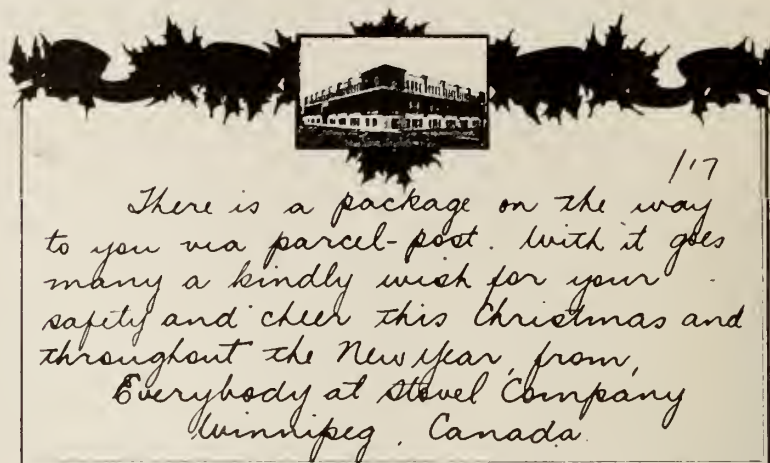 1/17
There is a package on the way
to you via parcel-post. With it goes
many a kindly wish for your
safety and cheer this Christmas and
throughout the New Year, from,
Everybody at Stovel Company
Winnipeg, Canada.